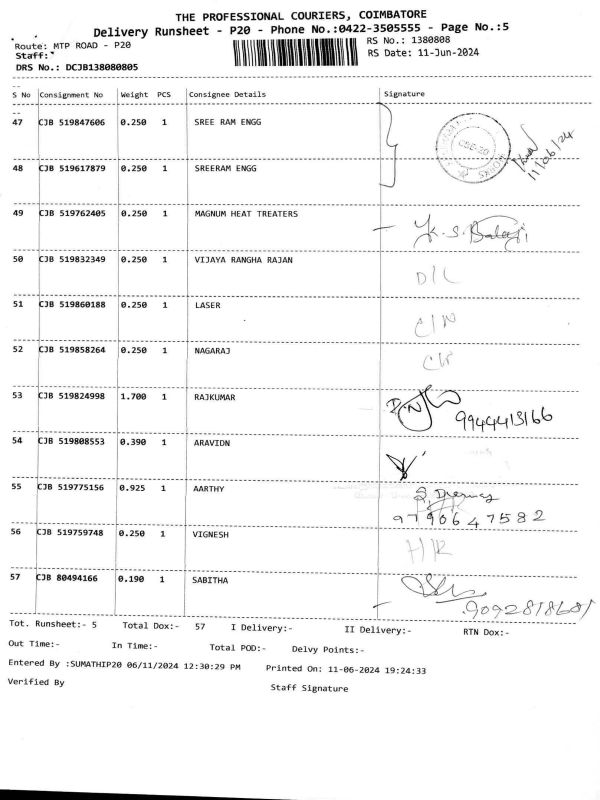 THE PROFESSIONAL COURIERS, COIMBATORE
Delivery Runsheet - P20 - Phone No.:0422-3505555 - Page No.:5
Route: MTP ROAD - P20 RS No.: 1380808
Staff: RS Date: 11-Jun-2024
DRS No.: DCJB138080805
S No Consignment No Weight PCS Consignee Details Signature
47 CJB 519847606 0.250 1 SREE RAM ENGG
11/06/24
48 CJB 519617879 0.250 1 SREERAM ENGG
49 CJB 519762405 0.250 1 MAGNUM HEAT TREATERS K.S. Balaji
50 CJB 519832349 0.250 1 VIJAYA RANGHA RAJAN D/L
51 CJB 519860188 0.250 1 LASER C/N
52 CJB 519858264 0.250 1 NAGARAJ
53 CJB 519824998 1.700 1 RAJKUMAR 9944413166
54 CJB 519808553 0.390 1 ARAVIDN
55 CJB 519775156 0.925 1 AARTHY
9790647582
56 CJB 519759748 0.250 1 VIGNESH
57 CJB 80494166 0.190 1 SABITHA
9092818681
Tot. Runsheet:- 5 Total Dox:- 57 I Delivery:- II Delivery:- RTN Dox:-
Out Time:- In Time:- Total POD:- Delvy Points:-
Entered By :SUMATHIP20 06/11/2024 12:30:29 PM Printed On: 11-06-2024 19:24:33
Verified By Staff Signature